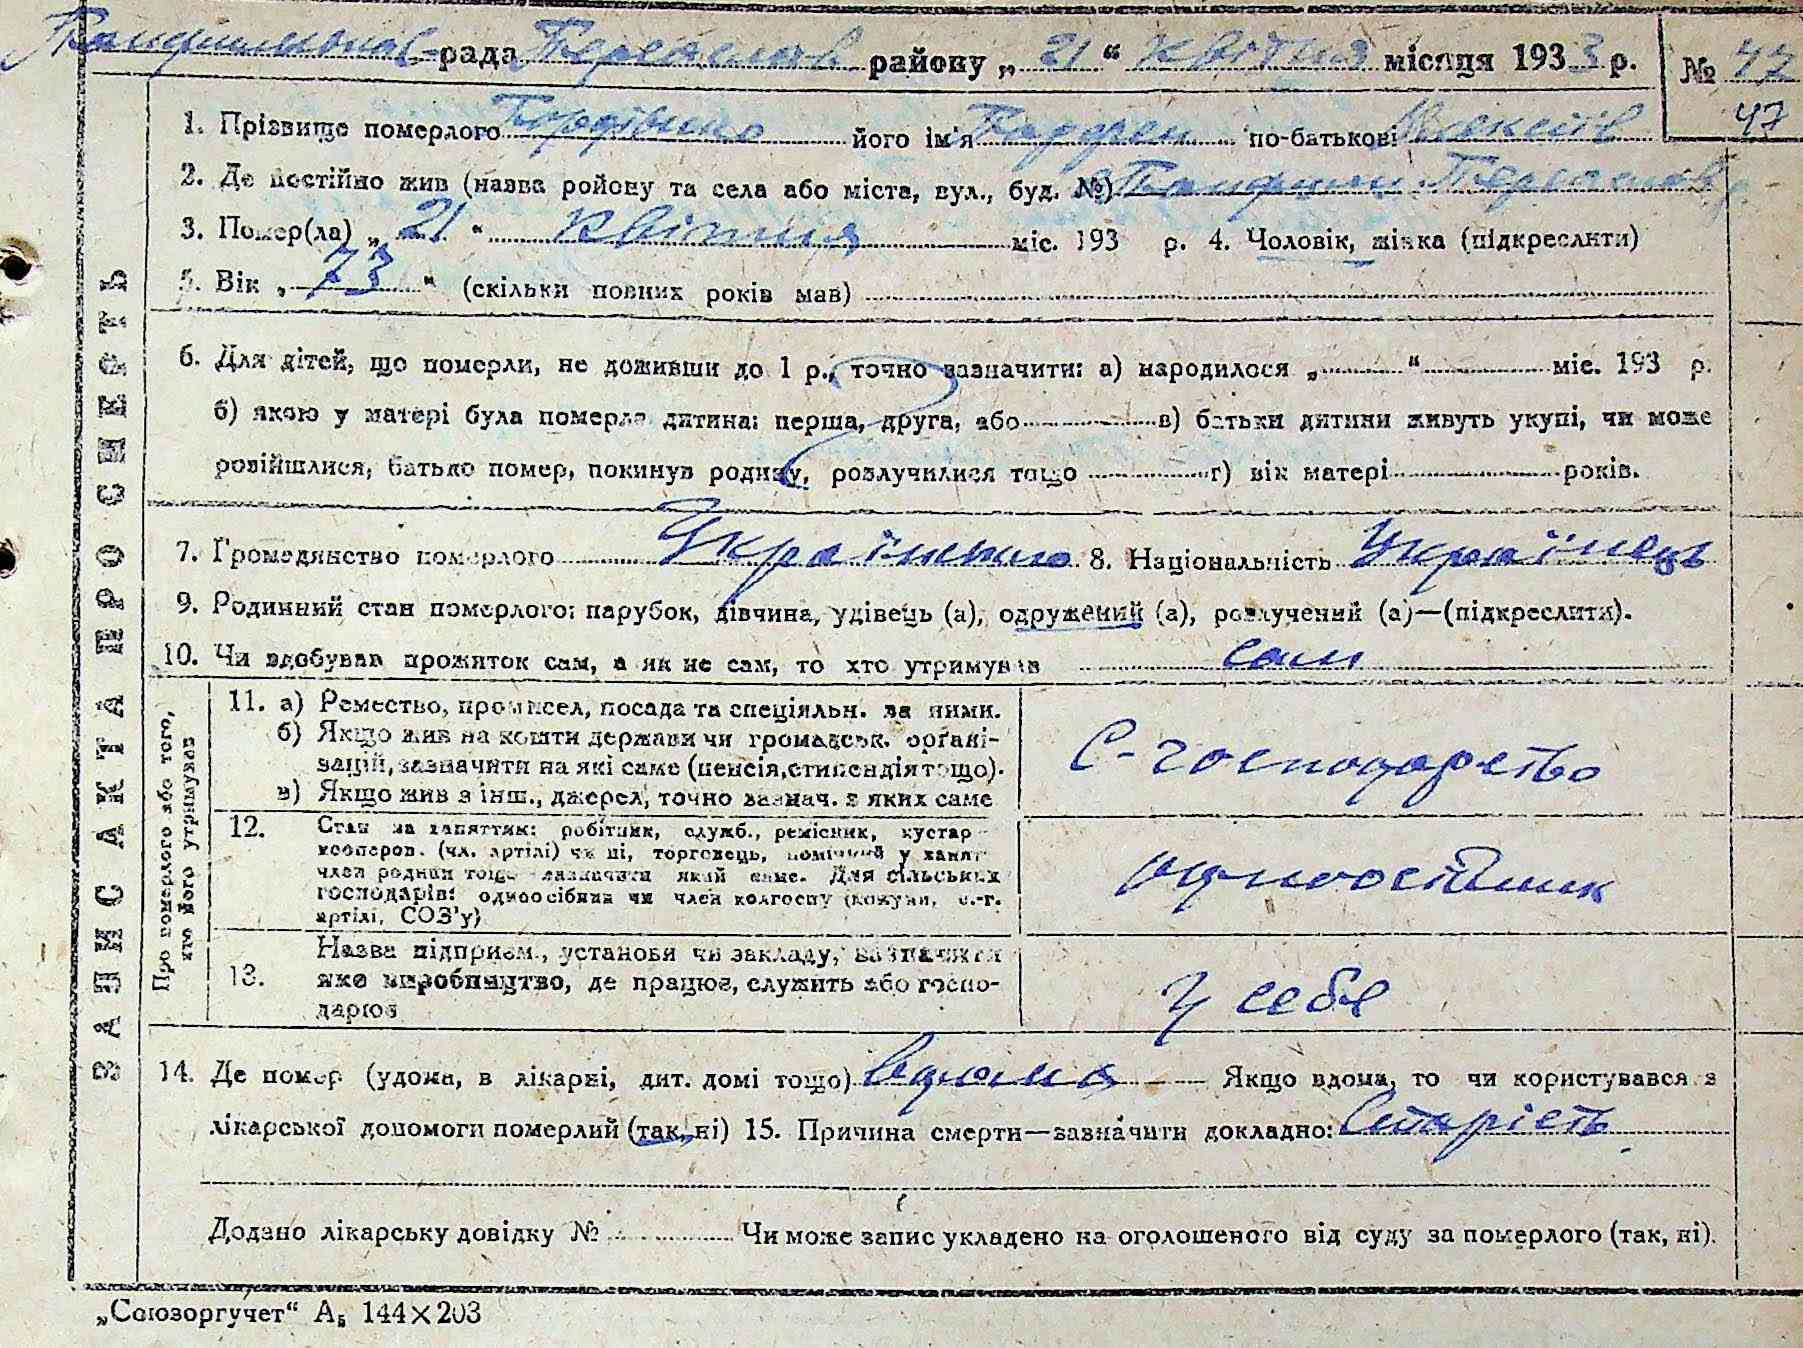 рада Переяслав району „ 21 “ квітня місяця 1933 р. № 47
47
1. Прізвище померлого його ім'я Парфен по-батькові Олексіїв
2. Де постійно жив (назва ройону та села або міста, вул., буд. №)
3. Помер(ла) „ 21 “ квітня міс. 193 р. 4. Чоловік, жінка (підкреслити)
5. Вік „ 73 “ (скільки повних років мав)
6. Для дітей, що померли, не доживши до 1 р., точно зазначити: а) народилося „ “ міс. 193 р.
б) якою у матері була померла дитина: перша, друга, або в) батьки дитини живуть укупі, чи може
розійшлися, батько помер, покинув родину, розлучилися тощо г) вік матері років.
7. Громадянство померлого Українське 8. Національність Українець
9. Родинний стан померлого: парубок, дівчина, удівець (а), одружений (а), розлучений (а)—(підкреслити).
10. Чи здобував прожиток сам, а як не сам, то хто утримував сам
11. а) Ремество, промисел, посада та спеціяльн. за ними.
б) Якщо жив на кошти держави чи громадськ. органі-
зацій, зазначити на які саме (пенсія, стипендія тощо).
в) Якщо жив з інш., джерел, точно зазнач. з яких саме
С-господарство
12. Стан за заняттям: робітник, служб., ремісник, кустар
кооперов. (чл. артілі) чи ні, торговець, помічний у занят
член родини тощо зазначити який саме. Для сільських
господарів: одноосібник чи член колгоспу (комуни, с.-г.
артілі, СОЗ'у)
одноосібник
13. Назва підприєм., установи чи закладу, зазначити
яке виробництво, де працює, служить або госпо-
дарює
у себе
Про померлого або того,
хто його утримував
ЗАПИС АКТА ПРО СМЕРТЬ
14. Де помер (удома, в лікарні, дит. домі тощо) вдома Якщо вдома, то чи користувався з
лікарської допомоги померлий (так, ні) 15. Причина смерти—зазначити докладно: Старість
Додано лікарську довідку № Чи може запис укладено на оголошеного від суду за померлого (так, ні).
„Союзоргучет“ А₅ 144×203